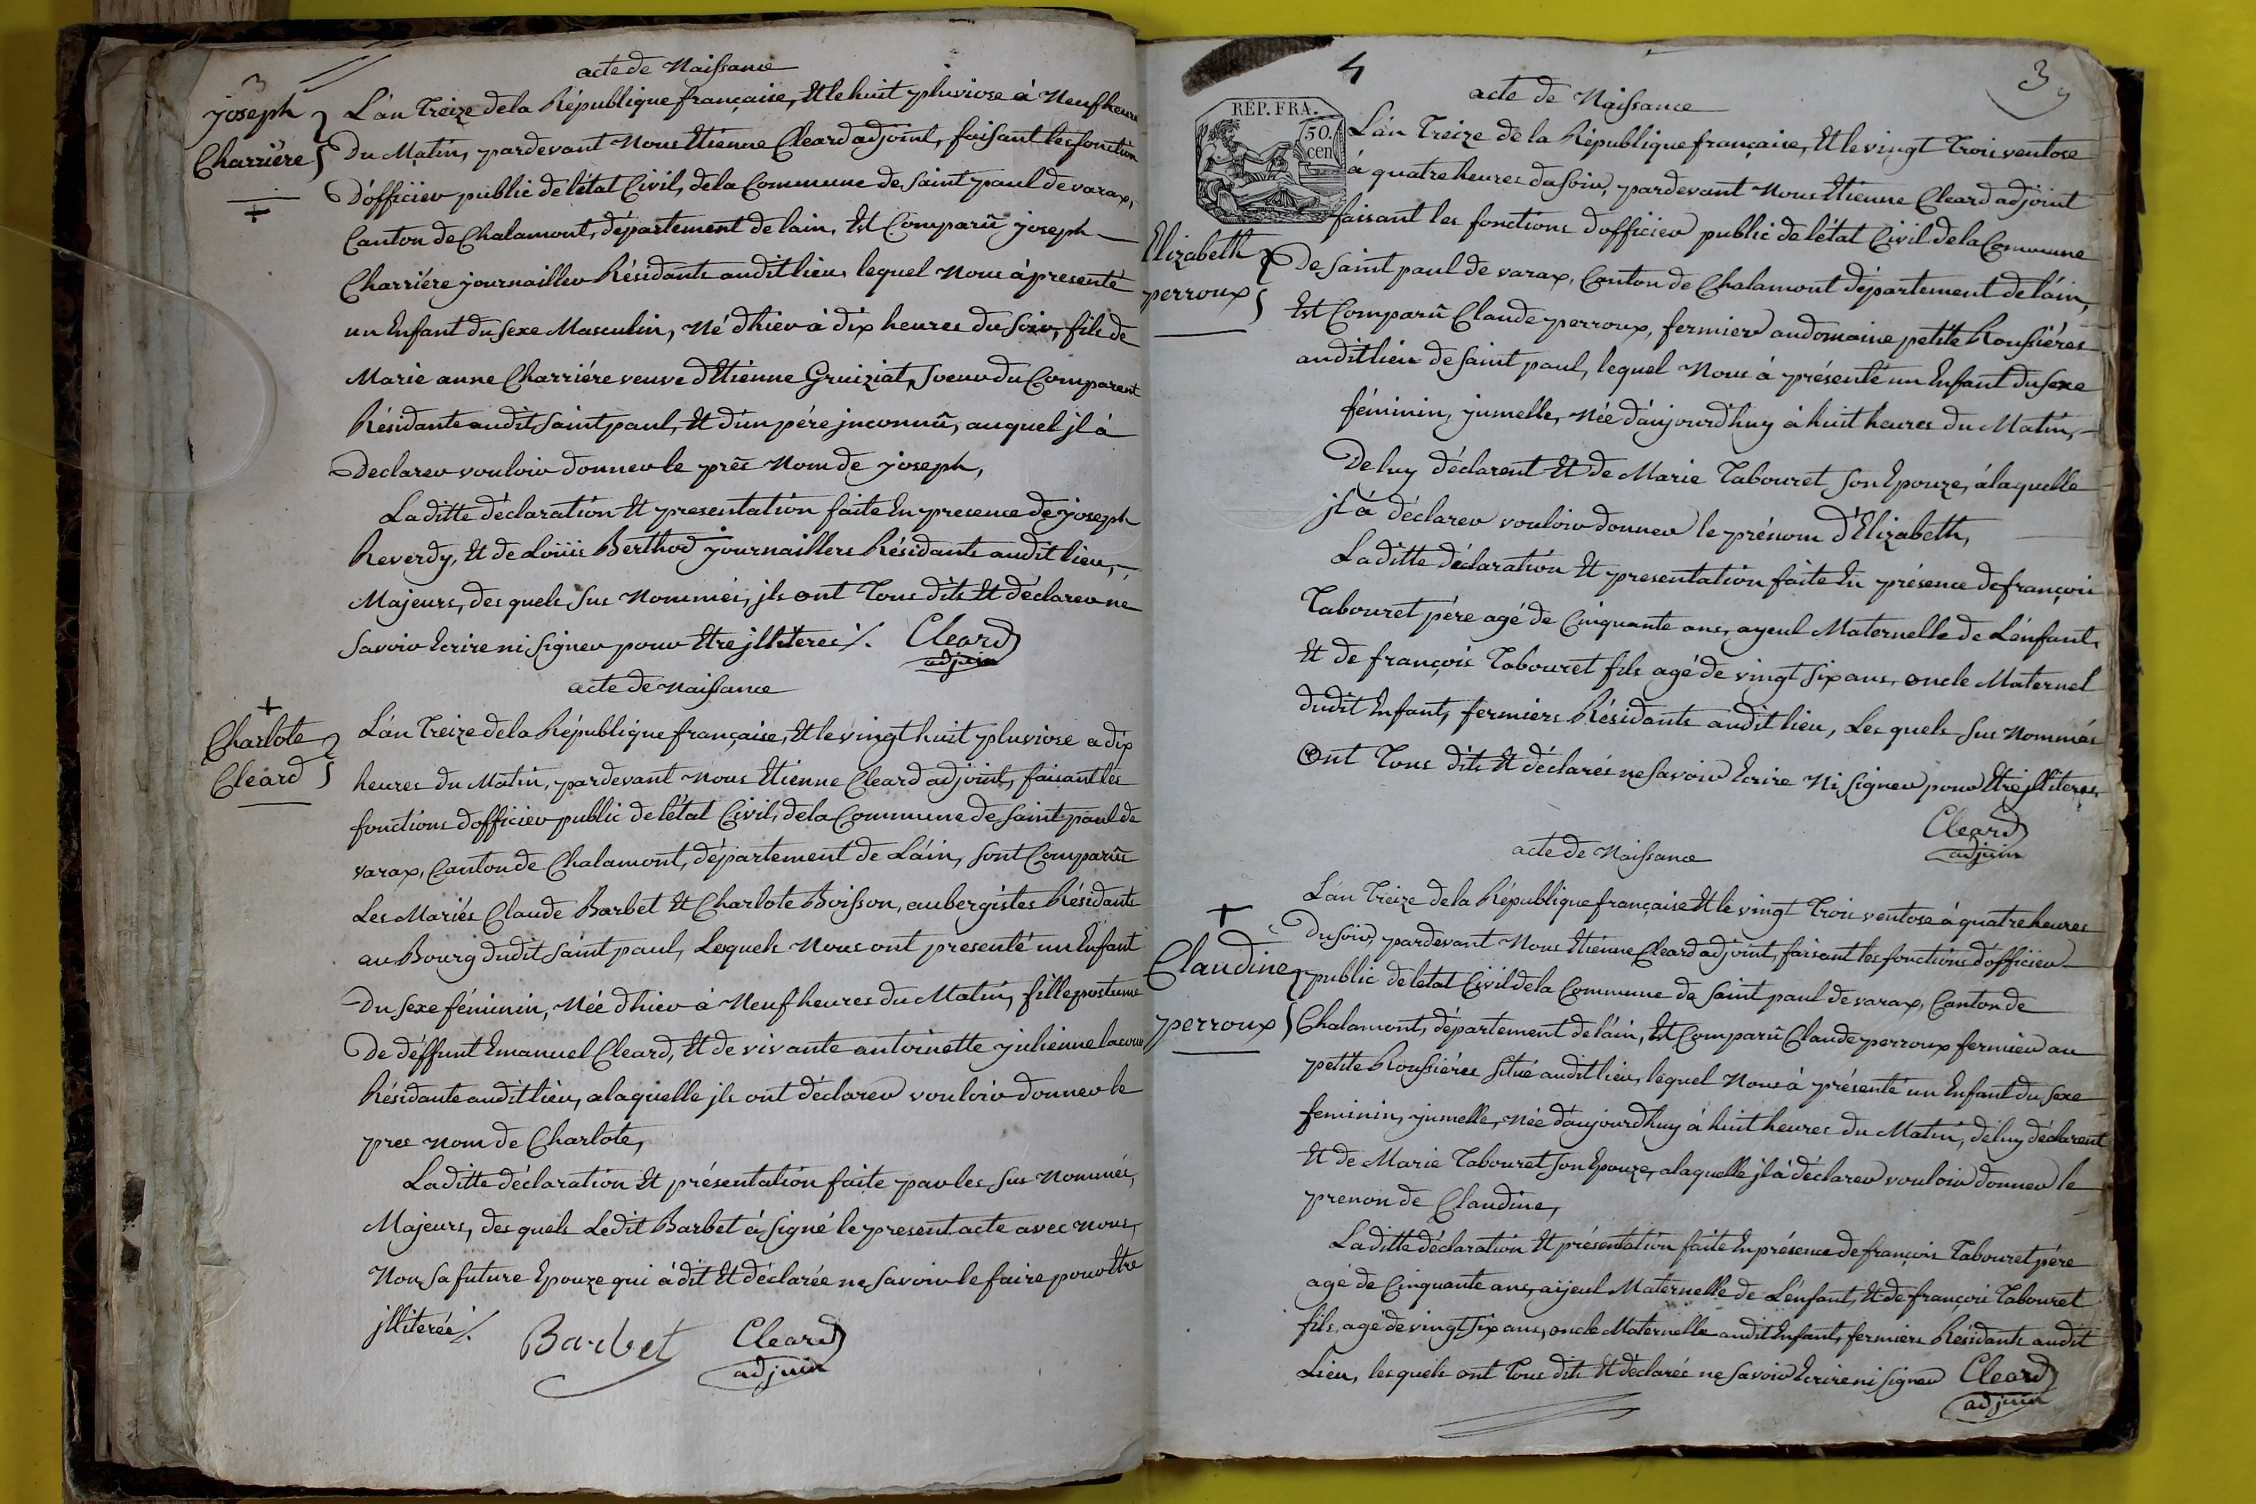 3
acte de Naissance
joseph
Charriére
L'án Treize dela République française, Et le huit pluviose á Neuf heures
Du Matin, pardevant Nous Etienne Cleard adjoint, faisant les fonction
D'officier public de l'état Civil, dela Commune de Saint paul de varax,
Canton de Chalamont, département de lain, Est Comparû joseph
Charriére journaillier Résidants audit lieu, lequel Nous à presenté
un Enfant du Sexe Masculin, Né d'hier à dix heures du Soir, fils de
Marie anne Charriére veuve d'Etienne Gruiziat, Soeur du Comparent
Résidante audit Saint paul, Et d'un pére jnconnû, auquel jl à
Declarer vouloir donner le prés Nom de joseph,
Laditte déclaration Et presentation faite En presence de joseph
Reverdy, Et de Loüis Berthod journailliers Résidants audit lieu,
Majeurs, des quels Sus Nommés, jls ont Tous dits Et déclarer ne
Savoir Ecrire ni Signer pour Etre jlliterés ./. Cleard
adjoin
acte de Naissance
Charlote
Cleard
L'án Treize dela République française, Et le vingt huit pluviose a dix
heures du Matin, pardevant Nous Etienne Cleard adjoint, faisant les
fonctions d'officier public de l'état Civil, dela Commune de Saint paul de
varax, Canton de Chalamont, département de L'áin, Sont Comparûs
Les Mariés Claude Barbet Et Charlote Boisson, aubergistes Résidants
au Bourg dudit Saint paul, Lequels Nous ont presenté un Enfant
Du Sexe féminin, Née d'hier à Neuf heures du Matin, fille postume
De déffunt Emanuel Cleard, Et de vivante antoinette julienne lacour
Résidante audit lieu, a laquelle jls ont déclarer vouloir donner le
pres nom de Charlote,
Laditte déclaration Et présentation faite par les Sus Nommés,
Majeurs, des quels Ledit Barbet à Signé le present acte avec nous,
Non Sa future Epouze qui à dit Et déclarée ne Savoir le faire pour Etre
jlliterée ./. Barbet Cleard
adjoin
4
3
REP. FRA.
50.
cen
acte de Naissance
L'án Treize de la République française, Et le vingt Trois ventose
á quatre heures du Soir, pardevant Nous Etienne Cleard adjoint
faisant les fonctions d'officier public de l'état Civil dela Commune
Elizabeth
perroux
De Saint paul de varax, Canton de Chalamont département de láin,
Est Comparû Claude perroux, fermier au domaine petite Roussiéres
audit lieu de Saint paul, lequel Nous à présenté un Enfant du Sexe
féminin, jumelle, Née d'aujourd'huy à huit heures du Matin,
De luy déclarent Et de Marie Tabouret Son Epouze, á laquelle
jl à déclarer vouloir donner le prénom d'Elizabeth,
Laditte déclaration Et presentation faite En présence de françois
Tabouret pére agé de Cinquante ans, ayeul Maternelle de L'enfant,
Et de françois Tabouret fils agé de vingt Six ans, oncle Maternel
dudit Enfant, fermiers Résidants audit lieu, Les quels Sus Nommés
Ont Tous dits Et déclarés ne Savoir Ecrire Ni Signer pour Etre jlliterés
Cleard
adjoin
acte de Naissance
Claudine
perroux
L'án Treize dela République française Et le vingt Trois ventose á quatre heures
Du Soir, pardevant Nous Etienne Cleard adjoint, faisant les fonctions d'officier
public de l'etat Civil dela Commune de Saint paul de varax, Canton de
Chalamont, département de l'áin, Est Comparû Claude perroux fermier au
petite Roussiéres Situé audit lieu, lequel Nous à présenté un Enfant du Sexe
feminin, jumelle, Née d'aujourd'huy á huit heures du Matin, de luy déclarent
Et de Marie Tabouret Son Epouze, a laquelle jl à déclarer vouloir donner le
prenon de Claudine,
Laditte déclaration Et présentation faite En présence de françois Tabouret pére
agé de Cinquante ans, aÿeul Maternelle de L'enfant, Et de françois Tabouret
fils, agé de vingt Six ans, oncle Maternelle audit Enfant, fermiers Résidants audit
Lieu, les quels ont Tous dits Et déclarés ne Savoir Ecrire ni Signer Cleard
adjoin